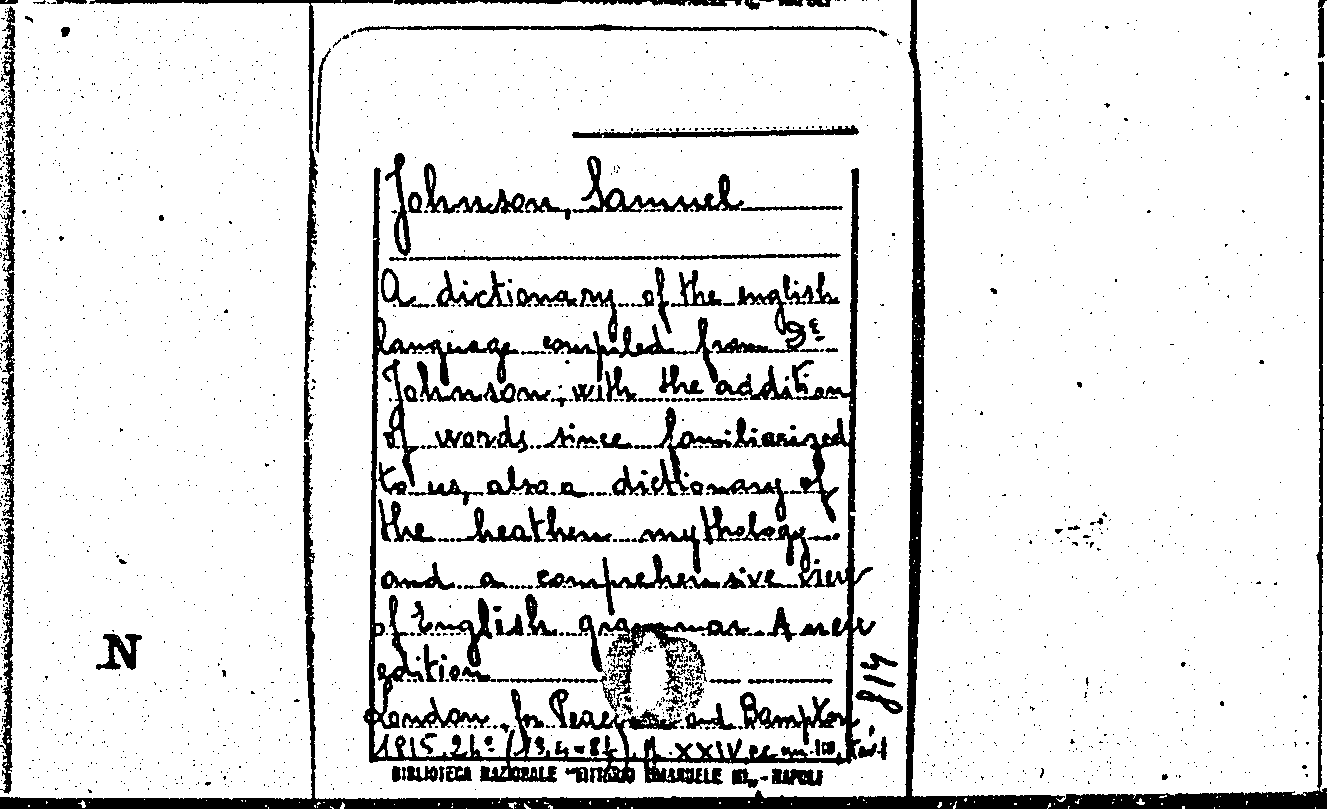 Johnson, Samuel
A dictionary of the english
language compiled from Dr
Johnson, with the addition
of words since familiarized
to us, also a dictionary of
the heathen mythology
and a comprehensive view
of English grammar A new
edition
London, for and Bampton,
1815. 24º (13,4=8½) p. XXIV
814
N
BIBLIOTECA NAZIONALE "VITTORIO EMANUELE III„ - NAPOLI